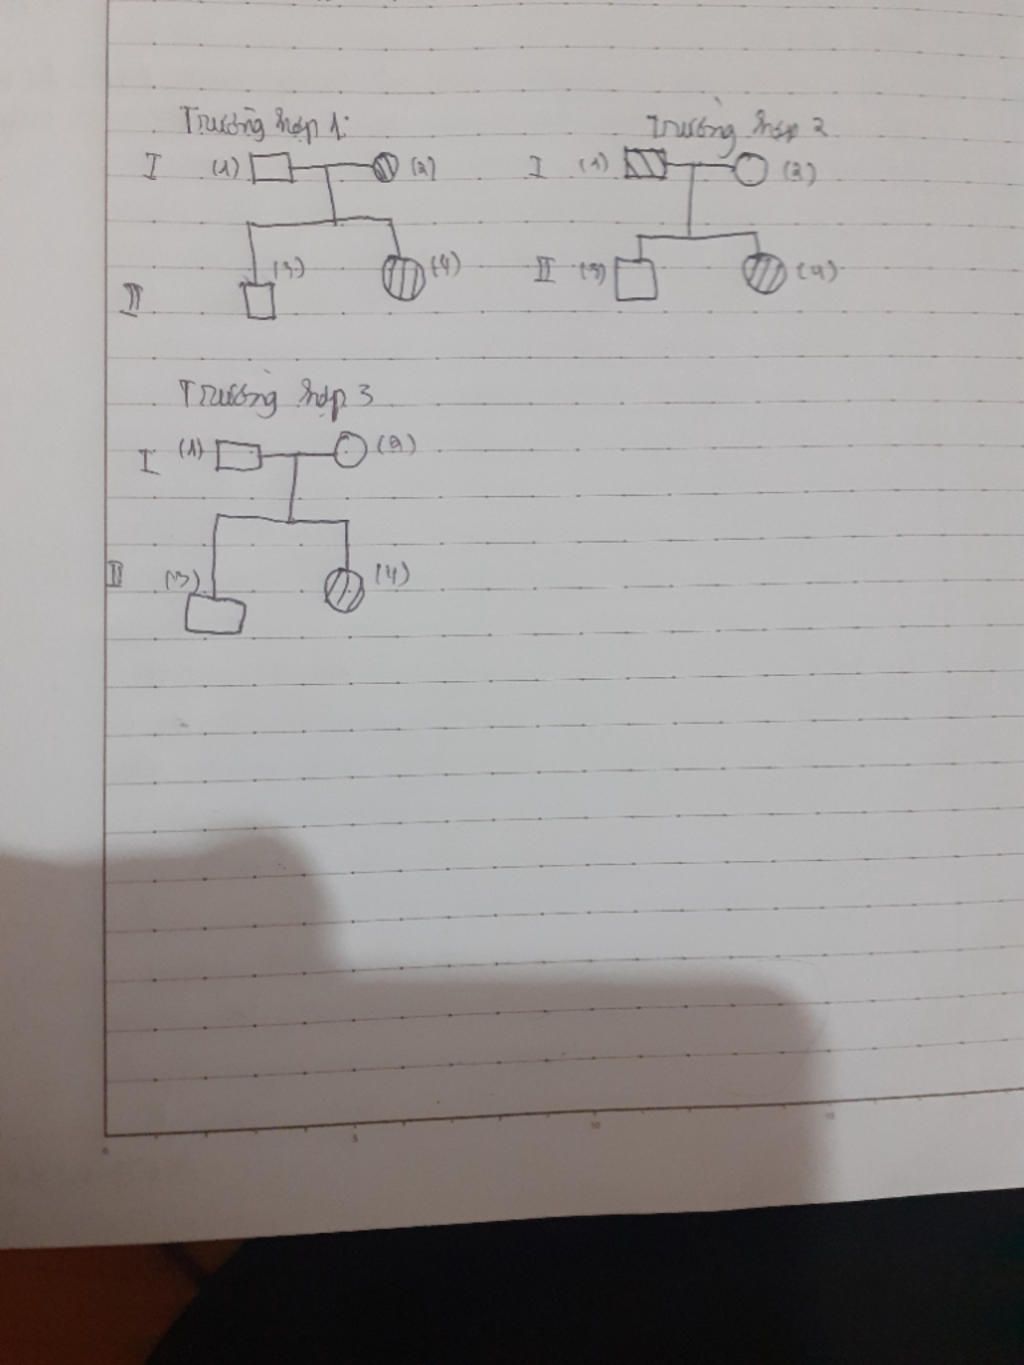 Trường hợp 1: Trường hợp 2
I (1) (2) I (1) (2)
(3) (4) II (3) (4)
II
Trường hợp 3
I (1) (2)
II (3) (4)
0 5 10 15